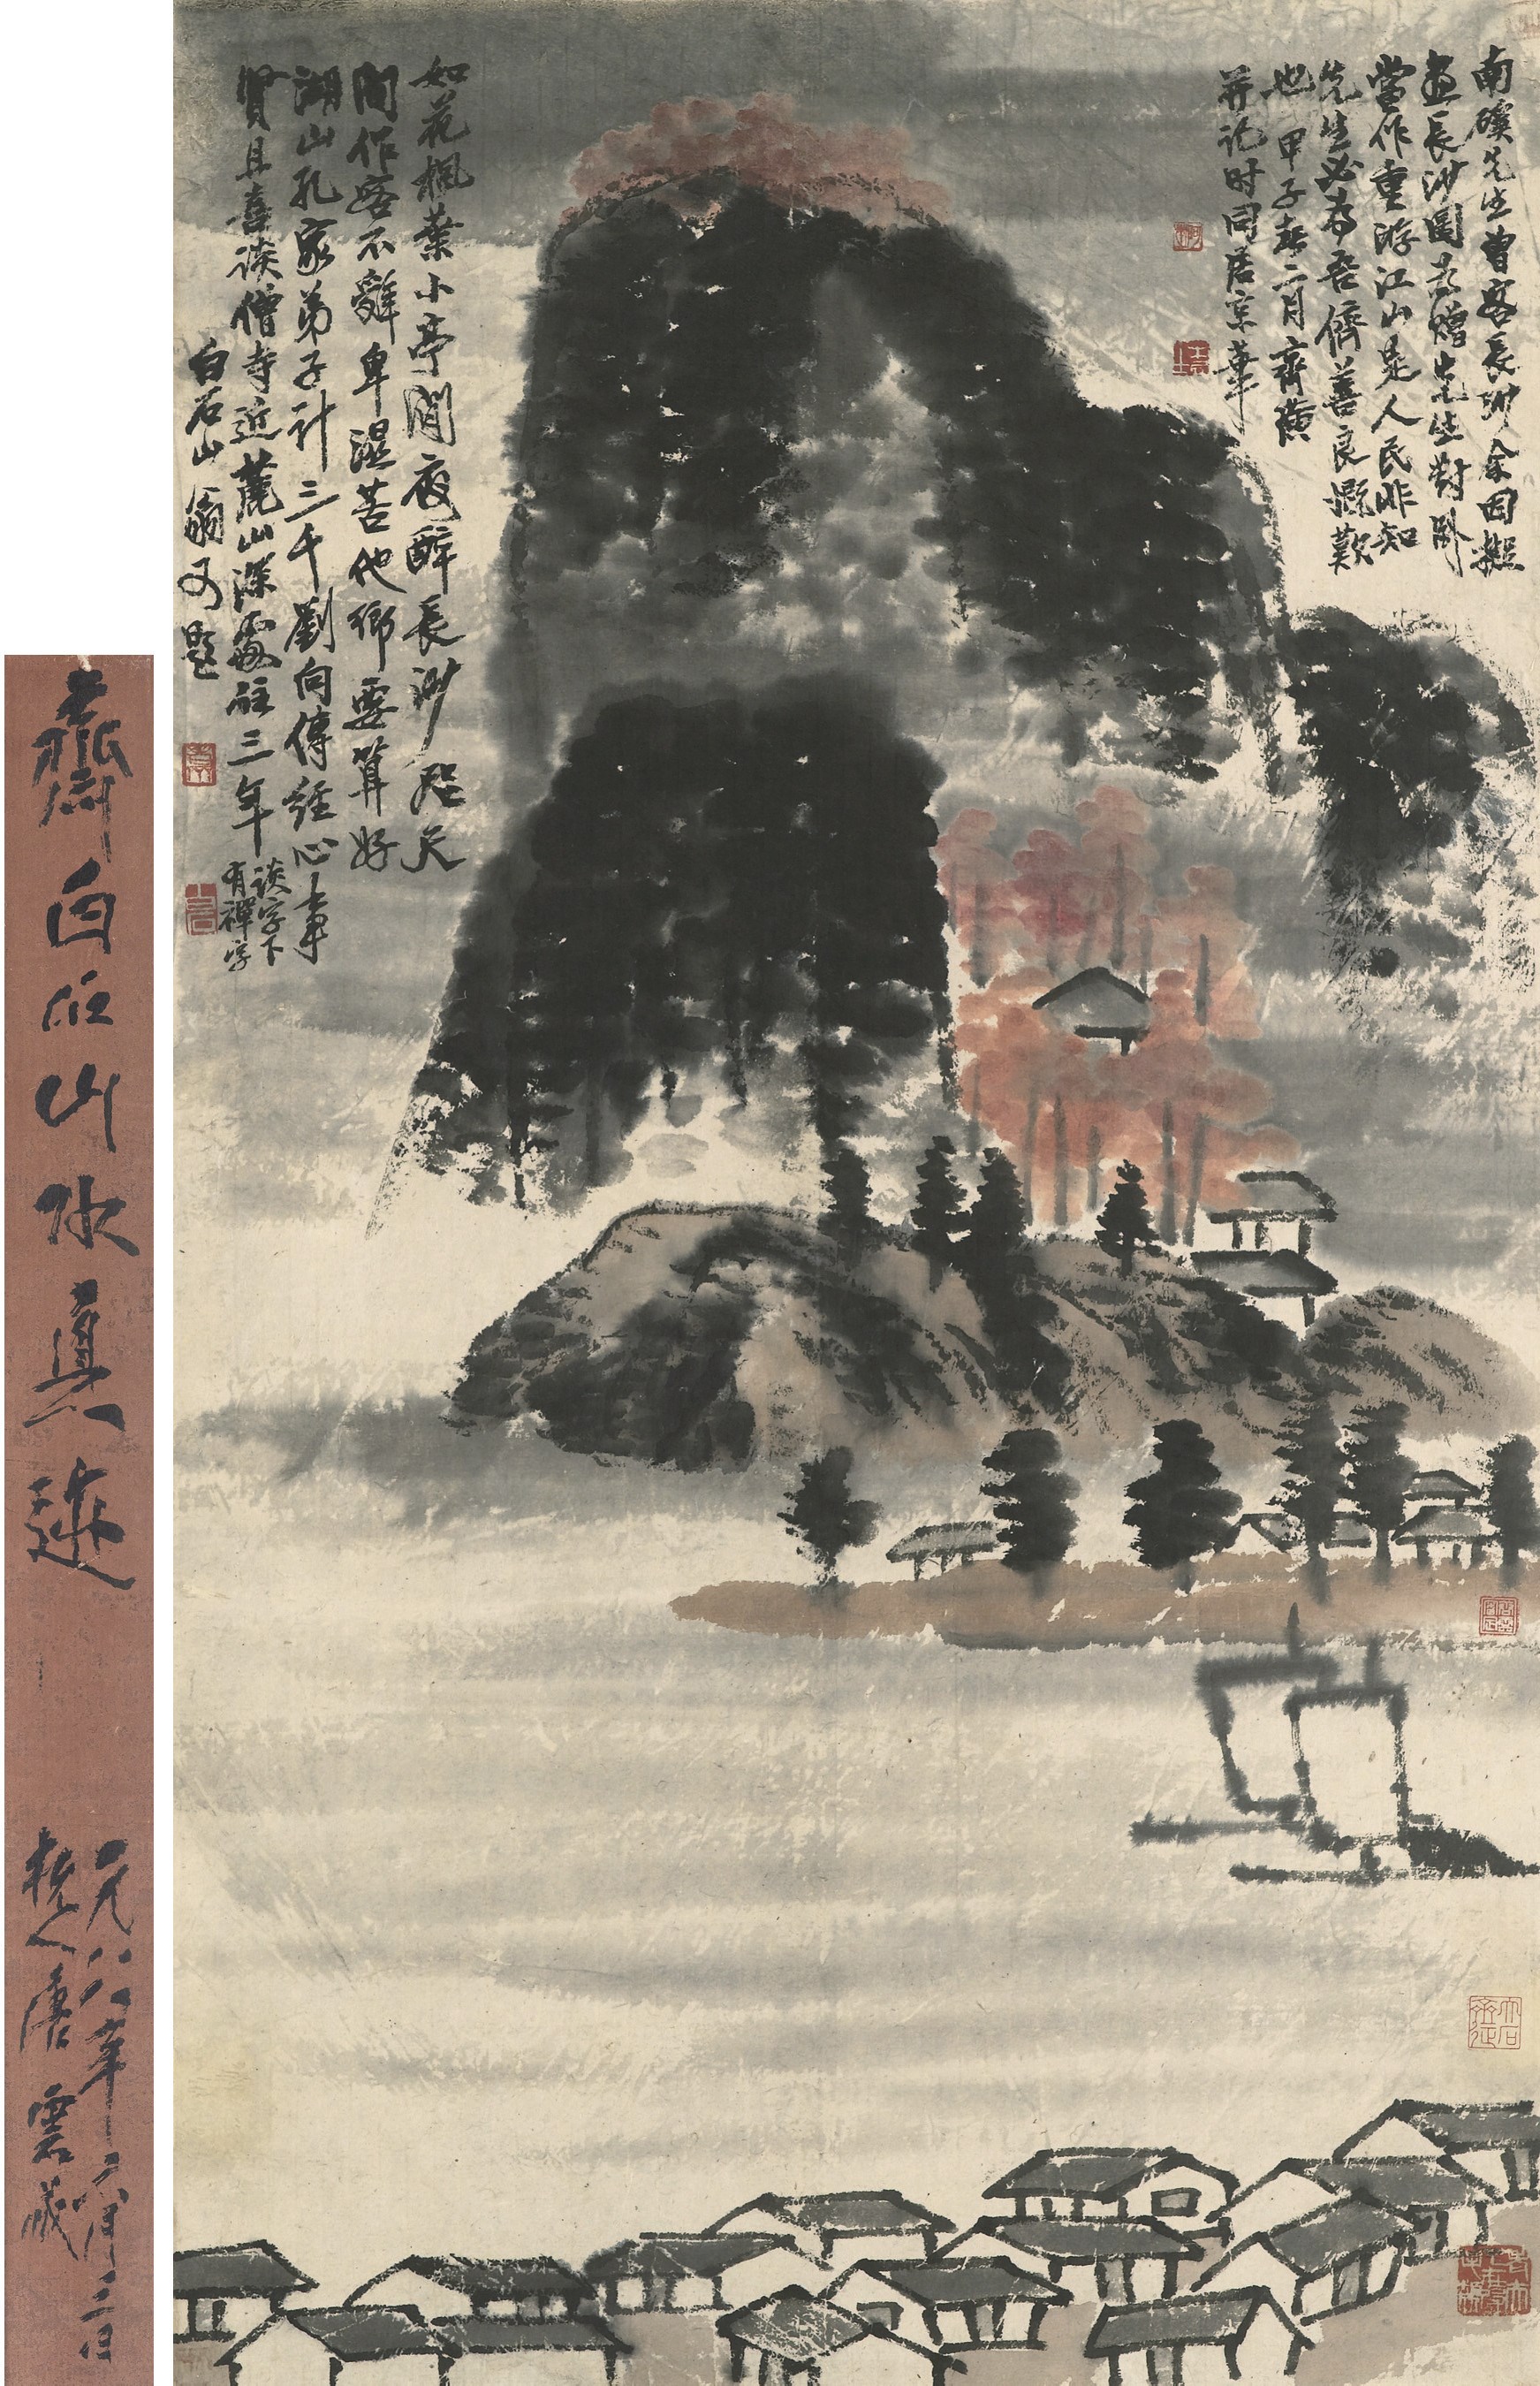 南磎先生曾客長沙余因擬
畫長沙圖為贈先生對臥
當作重游江山是人民非知
先生必為吾儕善良慨歎
也甲子春二月齊璜
并記时同居京華
如花楓葉小亭間夜醉長沙咫尺
間作客不辭卑濕苦他鄉要算好
湖山孔家弟子計三千劉向傳經心
最
賢且喜談僧寺近麓山深處住三年
談字下
有禪字
白石山翁又題
齊白石山水真迹
一九八八年六月三日
桃人唐雲識